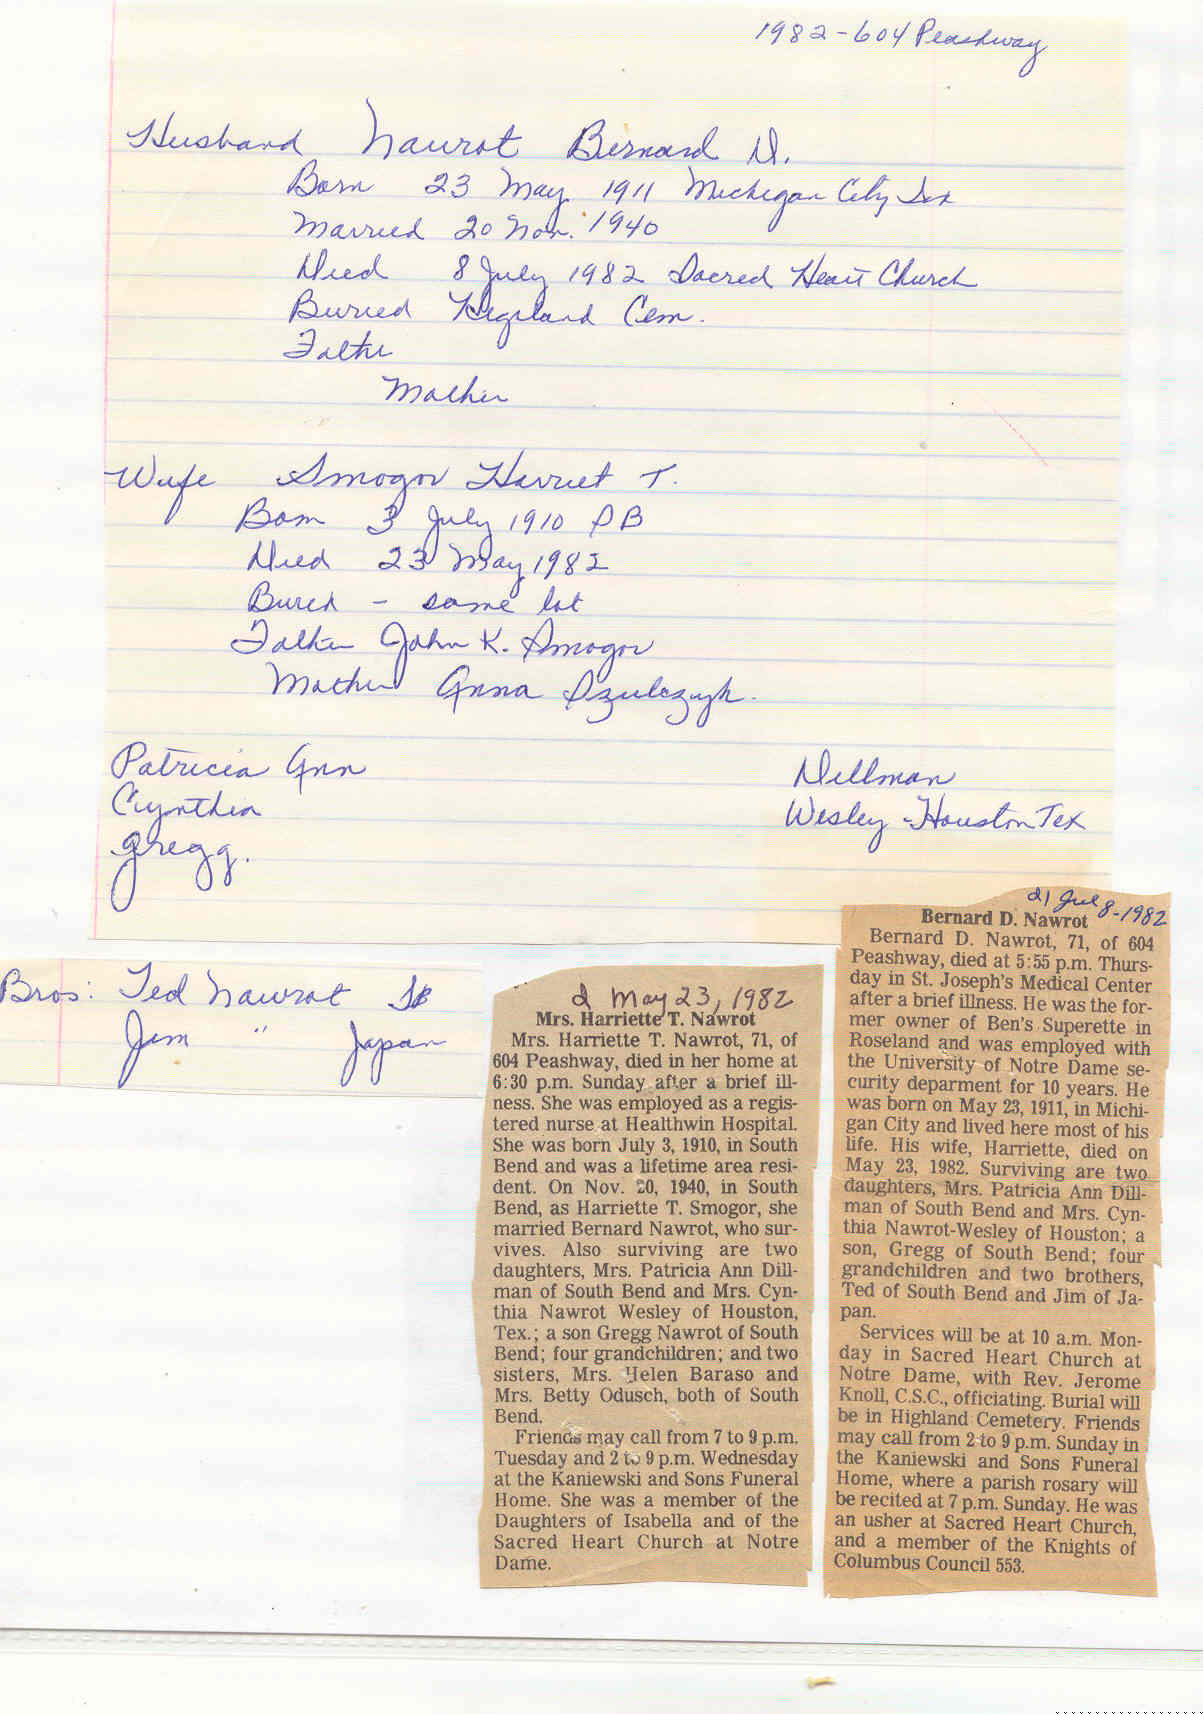 1982-604 Peashway
Husband Nawrot Bernard D.
Born 23 May 1911 Michigan City Ind
Married 20 Nov. 1940
Died 8 July 1982 Sacred Heart Church
Buried Highland Cem.
Father
Mother
Wife Smogor Harriet T.
Born 3 July 1910 SB
Died 23 May 1982
Buried - same lot
Father John K. Smogor
Mother Anna Szulczyk.
Patricia Ann Dillman
Cynthia Wesley - Houston Tex
Gregg.
Bros: Ted Nawrot SB
Jim " Japan
d May 23, 1982
Mrs. Harriette T. Nawrot
Mrs. Harriette T. Nawrot, 71, of
604 Peashway, died in her home at
6:30 p.m. Sunday after a brief ill-
ness. She was employed as a regis-
tered nurse at Healthwin Hospital.
She was born July 3, 1910, in South
Bend and was a lifetime area resi-
dent. On Nov. 20, 1940, in South
Bend, as Harriette T. Smogor, she
married Bernard Nawrot, who sur-
vives. Also surviving are two
daughters, Mrs. Patricia Ann Dill-
man of South Bend and Mrs. Cyn-
thia Nawrot Wesley of Houston,
Tex.; a son Gregg Nawrot of South
Bend; four grandchildren; and two
sisters, Mrs. Helen Baraso and
Mrs. Betty Odusch, both of South
Bend.
Friends may call from 7 to 9 p.m.
Tuesday and 2 to 9 p.m. Wednesday
at the Kaniewski and Sons Funeral
Home. She was a member of the
Daughters of Isabella and of the
Sacred Heart Church at Notre
Dame.
Jul 8-1982
Bernard D. Nawrot
Bernard D. Nawrot, 71, of 604
Peashway, died at 5:55 p.m. Thurs-
day in St. Joseph's Medical Center
after a brief illness. He was the for-
mer owner of Ben's Superette in
Roseland and was employed with
the University of Notre Dame se-
curity deparment for 10 years. He
was born on May 23, 1911, in Michi-
gan City and lived here most of his
life. His wife, Harriette, died on
May 23, 1982. Surviving are two
daughters, Mrs. Patricia Ann Dill-
man of South Bend and Mrs. Cyn-
thia Nawrot-Wesley of Houston; a
son, Gregg of South Bend; four
grandchildren and two brothers,
Ted of South Bend and Jim of Ja-
pan.
Services will be at 10 a.m. Mon-
day in Sacred Heart Church at
Notre Dame, with Rev. Jerome
Knoll, C.S.C., officiating. Burial will
be in Highland Cemetery. Friends
may call from 2 to 9 p.m. Sunday in
the Kaniewski and Sons Funeral
Home, where a parish rosary will
be recited at 7 p.m. Sunday. He was
an usher at Sacred Heart Church,
and a member of the Knights of
Columbus Council 553.